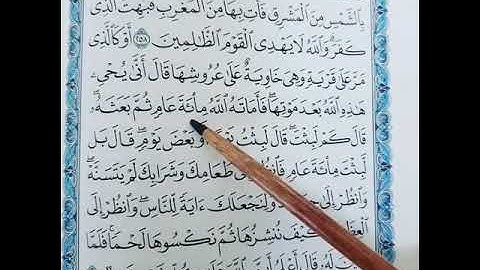 بِٱلشَّمۡسِ مِنَ ٱلۡمَشۡرِقِ فَأۡتِ بِهَا مِنَ ٱلۡمَغۡرِبِ فَبُهِتَ ٱلَّذِي
كَفَرَۗ وَٱللَّهُ لَا يَهۡدِي ٱلۡقَوۡمَ ٱلظَّٰلِمِينَ ٢٥٨ أَوۡ كَٱلَّذِي
مَرَّ عَلَىٰ قَرۡيَةٖ وَهِيَ خَاوِيَةٌ عَلَىٰ عُرُوشِهَا قَالَ أَنَّىٰ يُحۡيِۦ
هَٰذِهِ ٱللَّهُ بَعۡدَ مَوۡتِهَاۖ فَأَمَاتَهُ ٱللَّهُ مِاْئَةَ عَامٖ ثُمَّ بَعَثَهُۥۖ
قَالَ كَمۡ لَبِثۡتَۖ قَالَ لَبِثۡتُ أَوۡ بَعۡضَ يَوۡمٖۖ قَالَ بَل
لَّبِثۡتَ مِاْئَةَ عَامٖ فَٱنظُرۡ طَعَامِكَ وَشَرَابِكَ لَمۡ يَتَسَنَّهۡۖ
وَٱنظُرۡ إِلَىٰ وَلِنَجۡعَلَكَ ءَايَةٗ لِّلنَّاسِۖ وَٱنظُرۡ إِلَى
ٱلۡعِظَامِ كَيۡفَ نُنشِزُهَا ثُمَّ نَكۡسُوهَا لَحۡمٗاۚ فَلَمَّا
لَهُۥ قَالَ أَعۡلَمُ